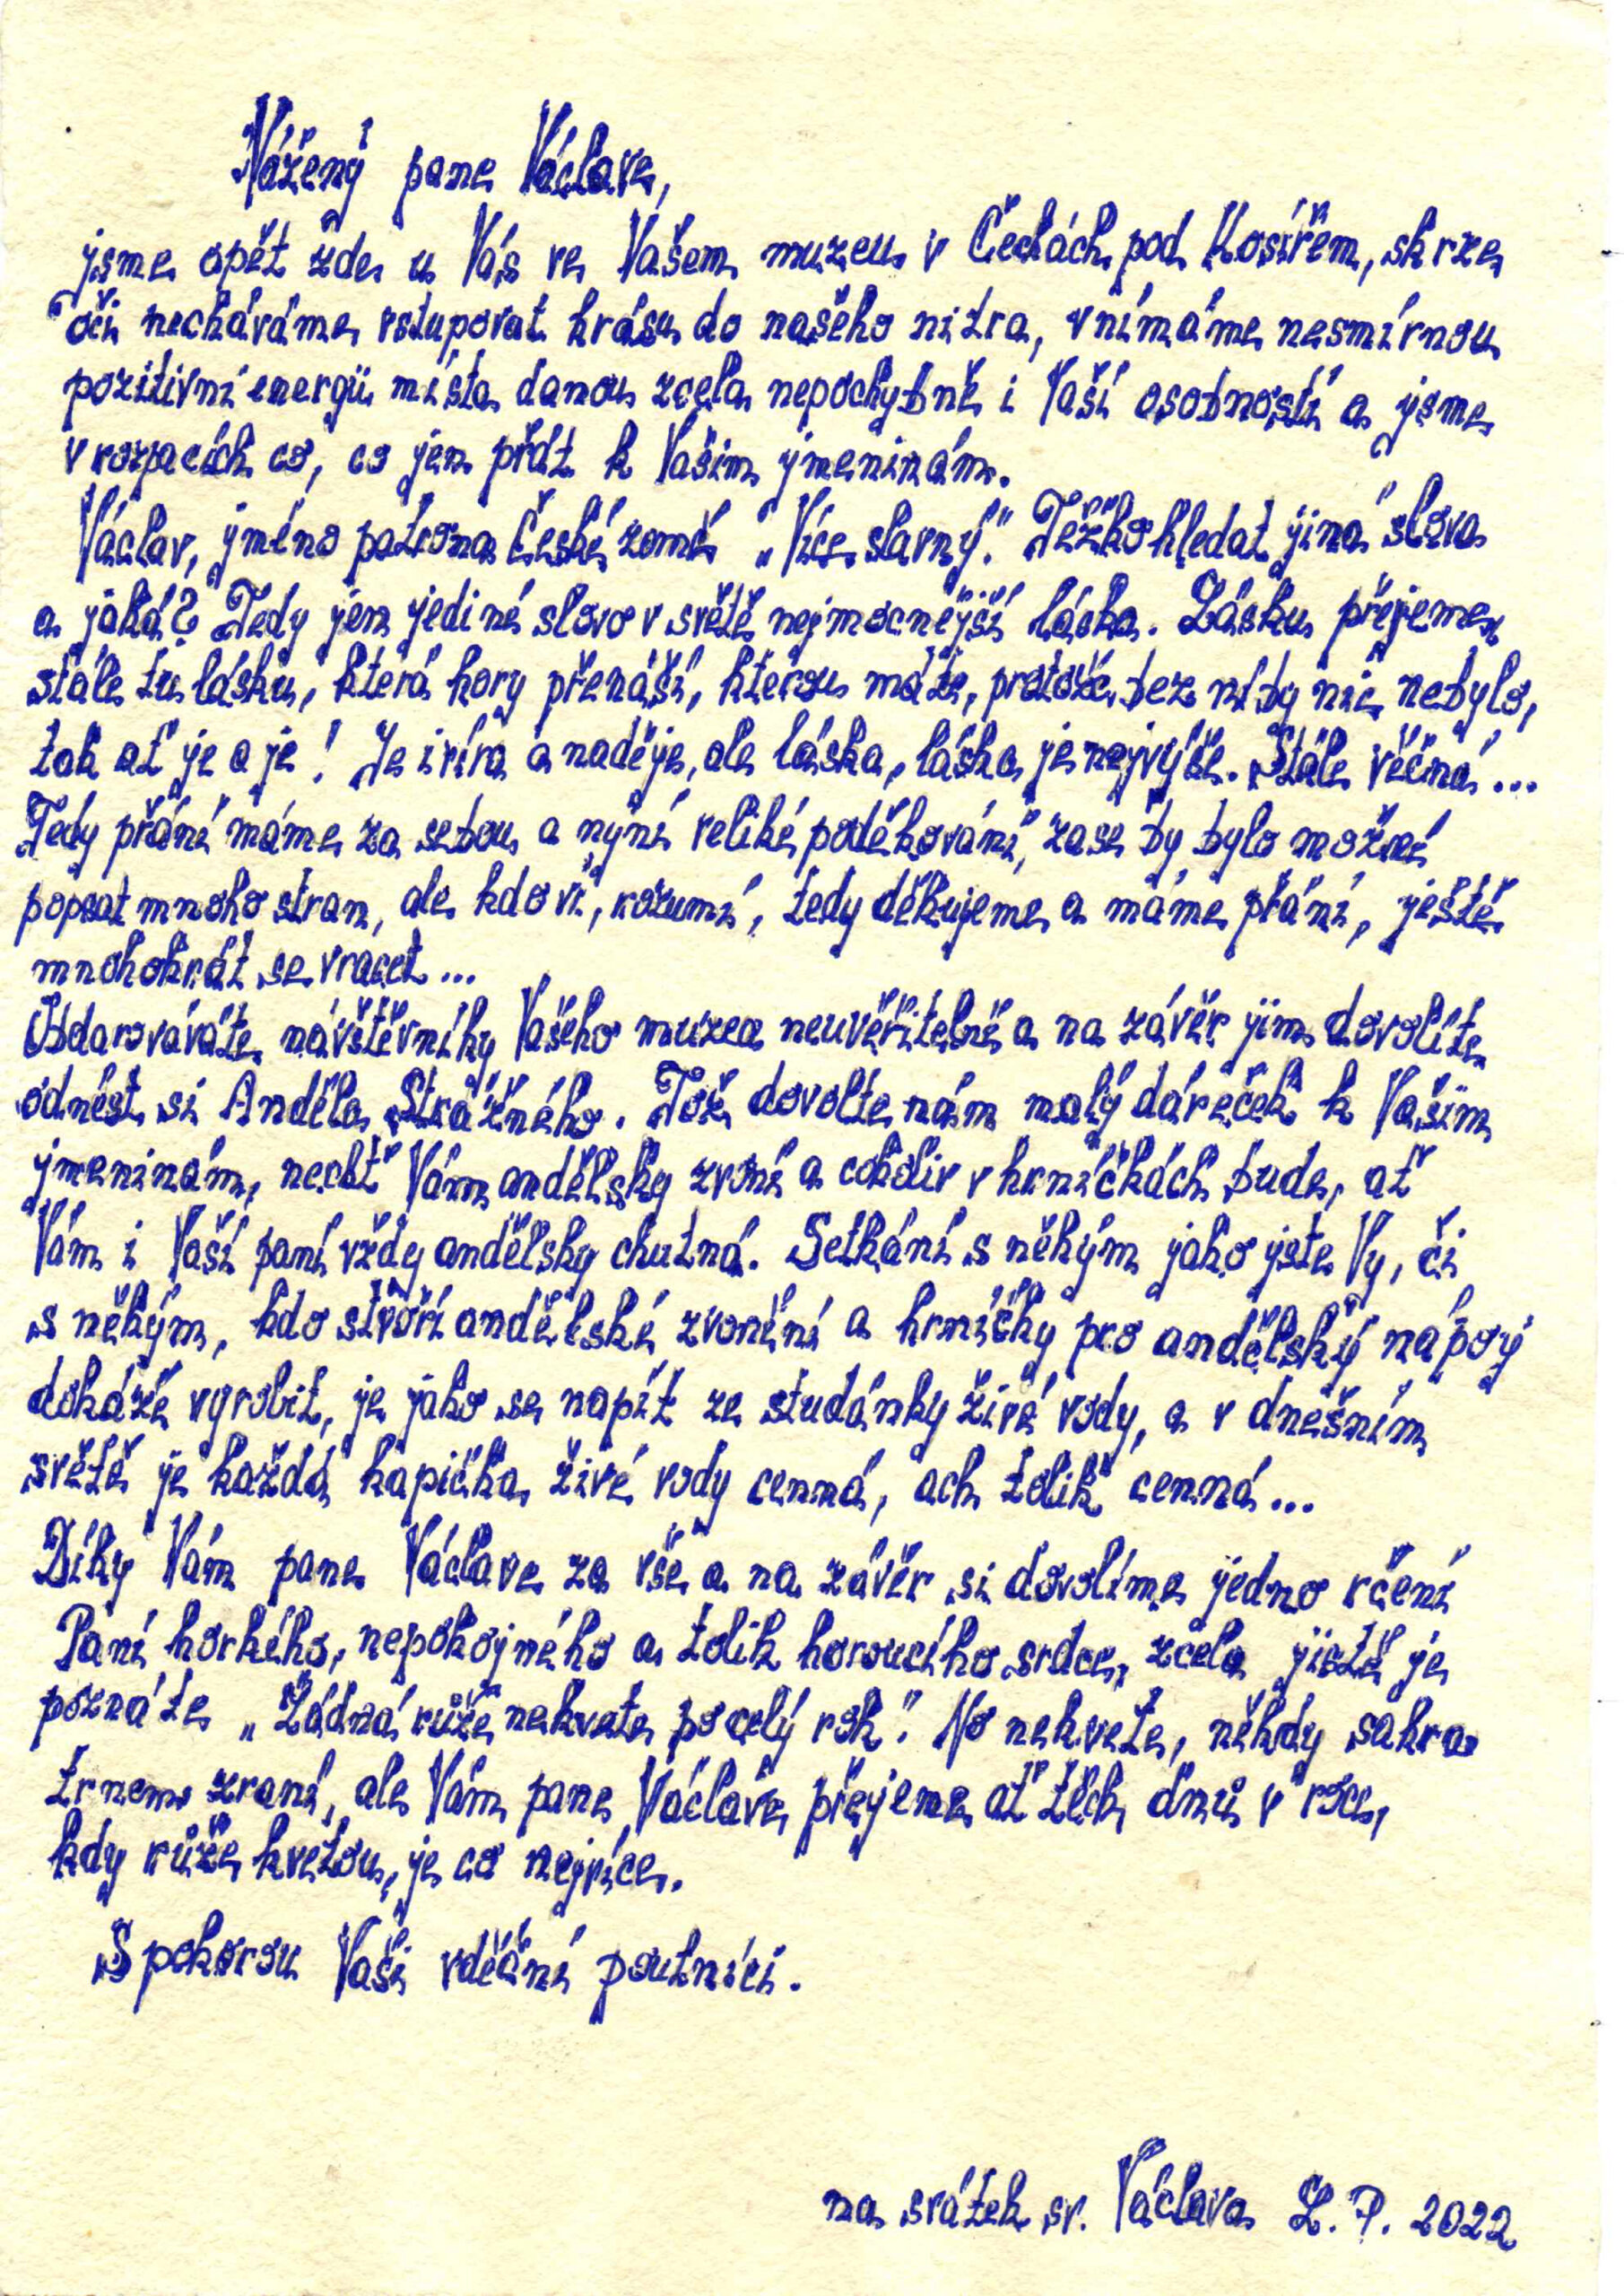 Vážený pane Václave,
jsme opět zde u Vás ve Vašem muzeu v Čechách pod Kosířem, skrze
oči necháváme vstupovat krásu do našeho nitra, vnímáme nesmírnou
pozitivní energii místa danou zcela nepochybně i Vaší osobností a jsme
v rozpacích co, co jen přát k Vašim jmeninám.
Václav, jméno patrona České země "Více slavný." Těžko hledat jiná slova
a jaká? Tedy jen jediné slovo v světě nejmocnější láska. Lásku přejeme,
stále tu lásku, která hory přenáší, kterou máte, protože bez ní by nic nebylo,
tak ať je a je! Je i víra a naděje, ale láska, láska je nejvýše. Stále věčná...
Tedy přání máme za sebou a nyní veliké poděkování, zase by bylo možné
popsat mnoho stran, ale kdo ví, rozumí, tedy děkujeme a máme přání, ještě
mnohokrát se vracet...
Obdarováváte návštěvníky Vašeho muzea neuvěřitelně a na závěr jim dovolíte
odnést si Anděla Strážného. Tož dovolte nám malý dáreček k Vašim
jmeninám, nechť Vám andělsky zvoní a cokoliv v hrníčkách bude, ať
Vám i Vaší paní vždy andělsky chutná. Setkání s někým jako jste Vy, či
s někým, kdo stvoří andělské zvonění a hrníčky pro andělský nápoj
dokáže vyrobit, je jako se napít ze studánky živé vody, a v dnešním
světě je každá kapička živé vody cenná, ach tolik cenná...
Díky Vám pane Václave za vše a na závěr si dovolíme jedno rčení
Paní horkého, nepokojného a tolik horoucího srdce, zcela jistě je
poznáte „Žádná růže nekvete po celý rok". No nekvete, někdy sakra
trnem zraní, ale Vám pane Václave přejeme ať těch dnů v roce,
kdy růže kvetou, je co nejvíce.
S pokorou Vaši vděční poutníci.
na svátek sv. Václava L. P. 2022